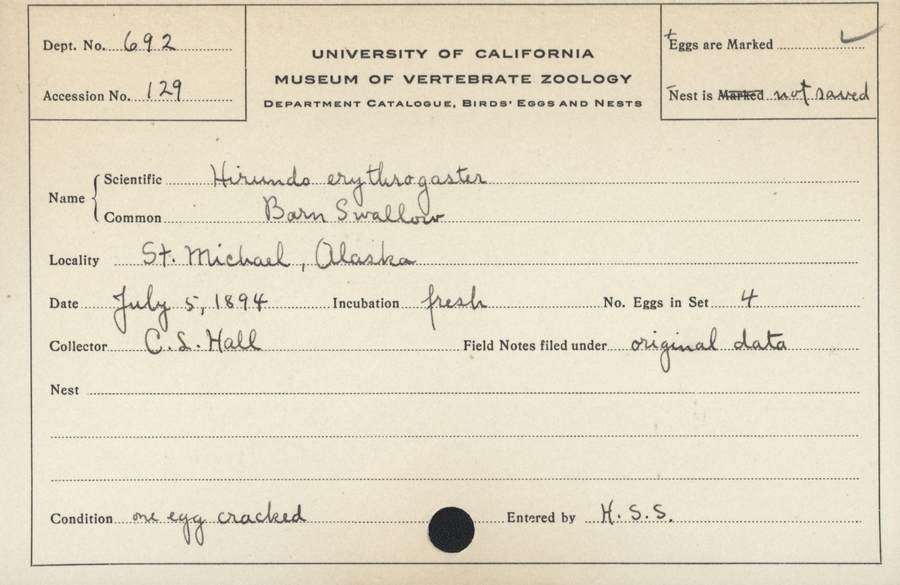 Dept. No. 692
Accession No. 129
UNIVERSITY OF CALIFORNIA
MUSEUM OF VERTEBRATE ZOOLOGY
DEPARTMENT CATALOGUE, BIRDS' EGGS AND NESTS
Eggs are Marked ✓
Nest is Marked not saved
Name
Scientific Hirundo erythrogaster
Common Barn Swallow
Locality St. Michael, Alaska
Date July 5, 1894 Incubation fresh No. Eggs in Set 4
Collector C. S. Hall Field Notes filed under original data
Nest
Condition one egg cracked Entered by H. S. S.